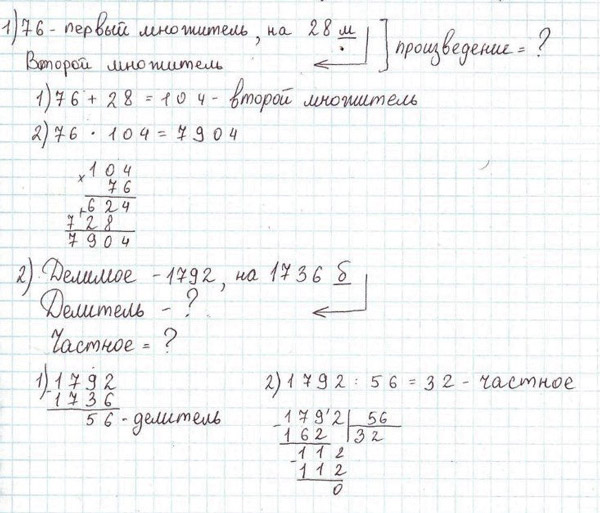 1) 76 - первый множитель, на 28 м ] произведение = ?
Второй множитель
1) 76 + 28 = 104 - второй множитель
2) 76 · 104 = 7904
× 104
76
+ 624
728
7904
2) Делимое - 1792, на 1736 б
Делитель - ?
Частное = ?
1) - 1792
1736
56 - делитель
2) 1792 : 56 = 32 - частное
- 1792 | 56
162 | 32
- 112
112
0